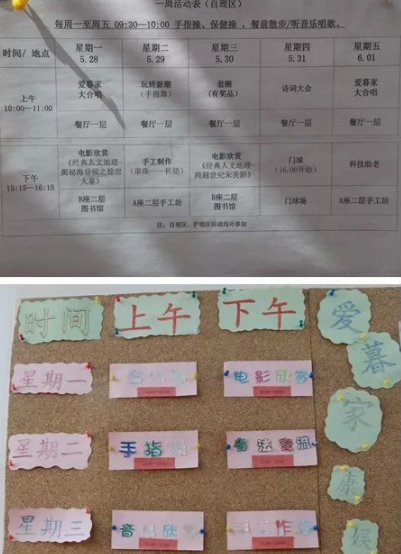 一周活动表（自理区）
每周一至周五 09:30—10:00 手指操、保健操 、餐前散步/听音乐唱歌。
时间/ 地点 星期一 5.28 星期二 5.29 星期三 5.30 星期四 5.31 星期五 6.01
上午 10:00—11:00
爱暮家 大合唱 玩转新潮 （手指舞） 套圈 （有奖品） 诗词大会 爱暮家 大合唱
餐厅一层 餐厅一层 餐厅一层 餐厅一层 餐厅一层
下午 15:15—16:15
电影欣赏 《经典人文地理 手工制作 电影欣赏 《经典人文地理 门球 （16:00开始） 科技助老
B座二层 图书馆 A座二层手工坊 B座二层 图书馆 门球场 A座二层手工坊
注：自理区、护理区活动均可参加
时间 上午 下午 爱
暮
星期一 电影欣赏 家
星期二 手指操 康
星期三 音乐欣赏 手工作 娱